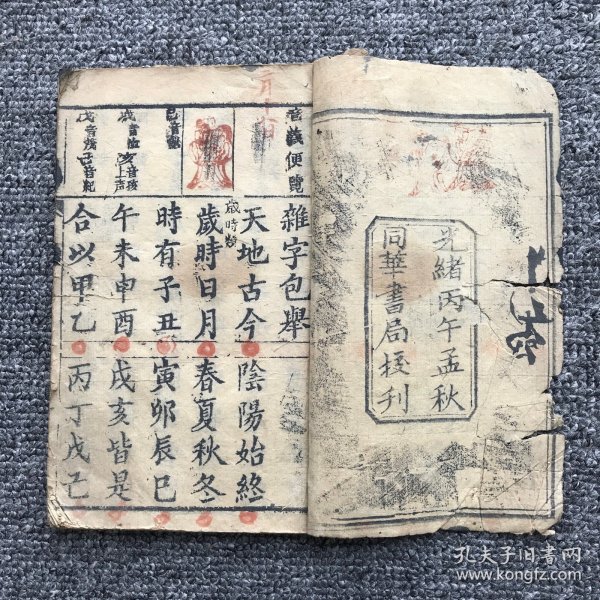 光緒丙午孟秋
同華書局校刊
音義便覽
雜字包舉
歲時類
天地古今
陰陽始終
歲時日月
春夏秋冬
時有子丑
寅卯辰巳
午未申酉
戌亥皆是
合以甲乙
丙丁戊己
孔夫子旧书网
www.kongfz.com